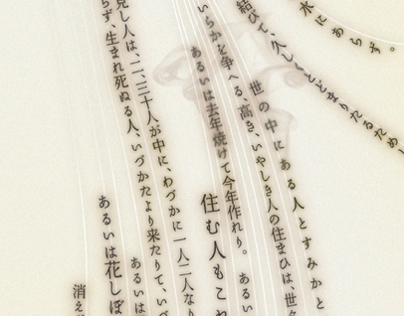 水にあらず。
結びて、久しくとどまりたるため
世の中にある人とすみかと
いらかを争へる、高き、いやしき人の住まひは、世
あるいは去年焼けて今年作れり。あるい
住む人もこ
見し人は、二、三十人が中に、わづかに一人二人なり
らず、生まれ死ぬる人、いづかたより来たりて、いづ
あるいは
あるいは花しぼ
消え